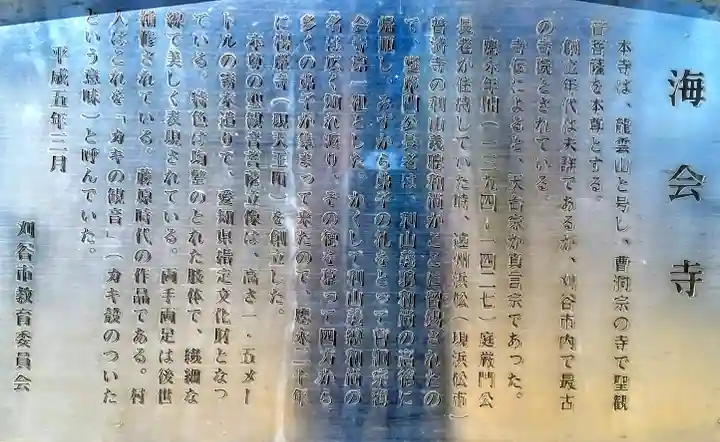 海会寺
本寺は、龍雲山と号し、曹洞宗の寺で聖観
音菩薩を本尊とする。
創立年代は未詳であるが、刈谷市内で最古
の寺院とされている。
寺伝によると、天台宗か真言宗であった。
応永年間(一三九四-一四二七)庭厳門公
長老が住持していた時、遠州浜松(現浜松市)
普済寺の利山義聡和尚がここに留錫されたの
で、庭厳門公長老は、利山義聡和尚の高徳に
帰依し、みずから弟子の礼をとって曹洞宗海
会寺第一祖とした。かくして利山義聡和尚の
名は広く知れ渡り、その徳を慕って四方から
多くの弟子が集まって来たので、応永二十年
に楞厳寺(現天王町)を創立した。
本尊の聖観音菩薩立像は、高さ一・五メー
トルの寄木造りで、愛知県指定文化財となっ
ている。特色は均整のとれた肢体で、繊細な
線で美しく表現されている。両手両足は後世
補修されている。藤原時代の作品である。村
人はこれを「カキの観音」(カキ殻のついた
という意味)と呼んでいた。
平成五年三月
刈谷市教育委員会